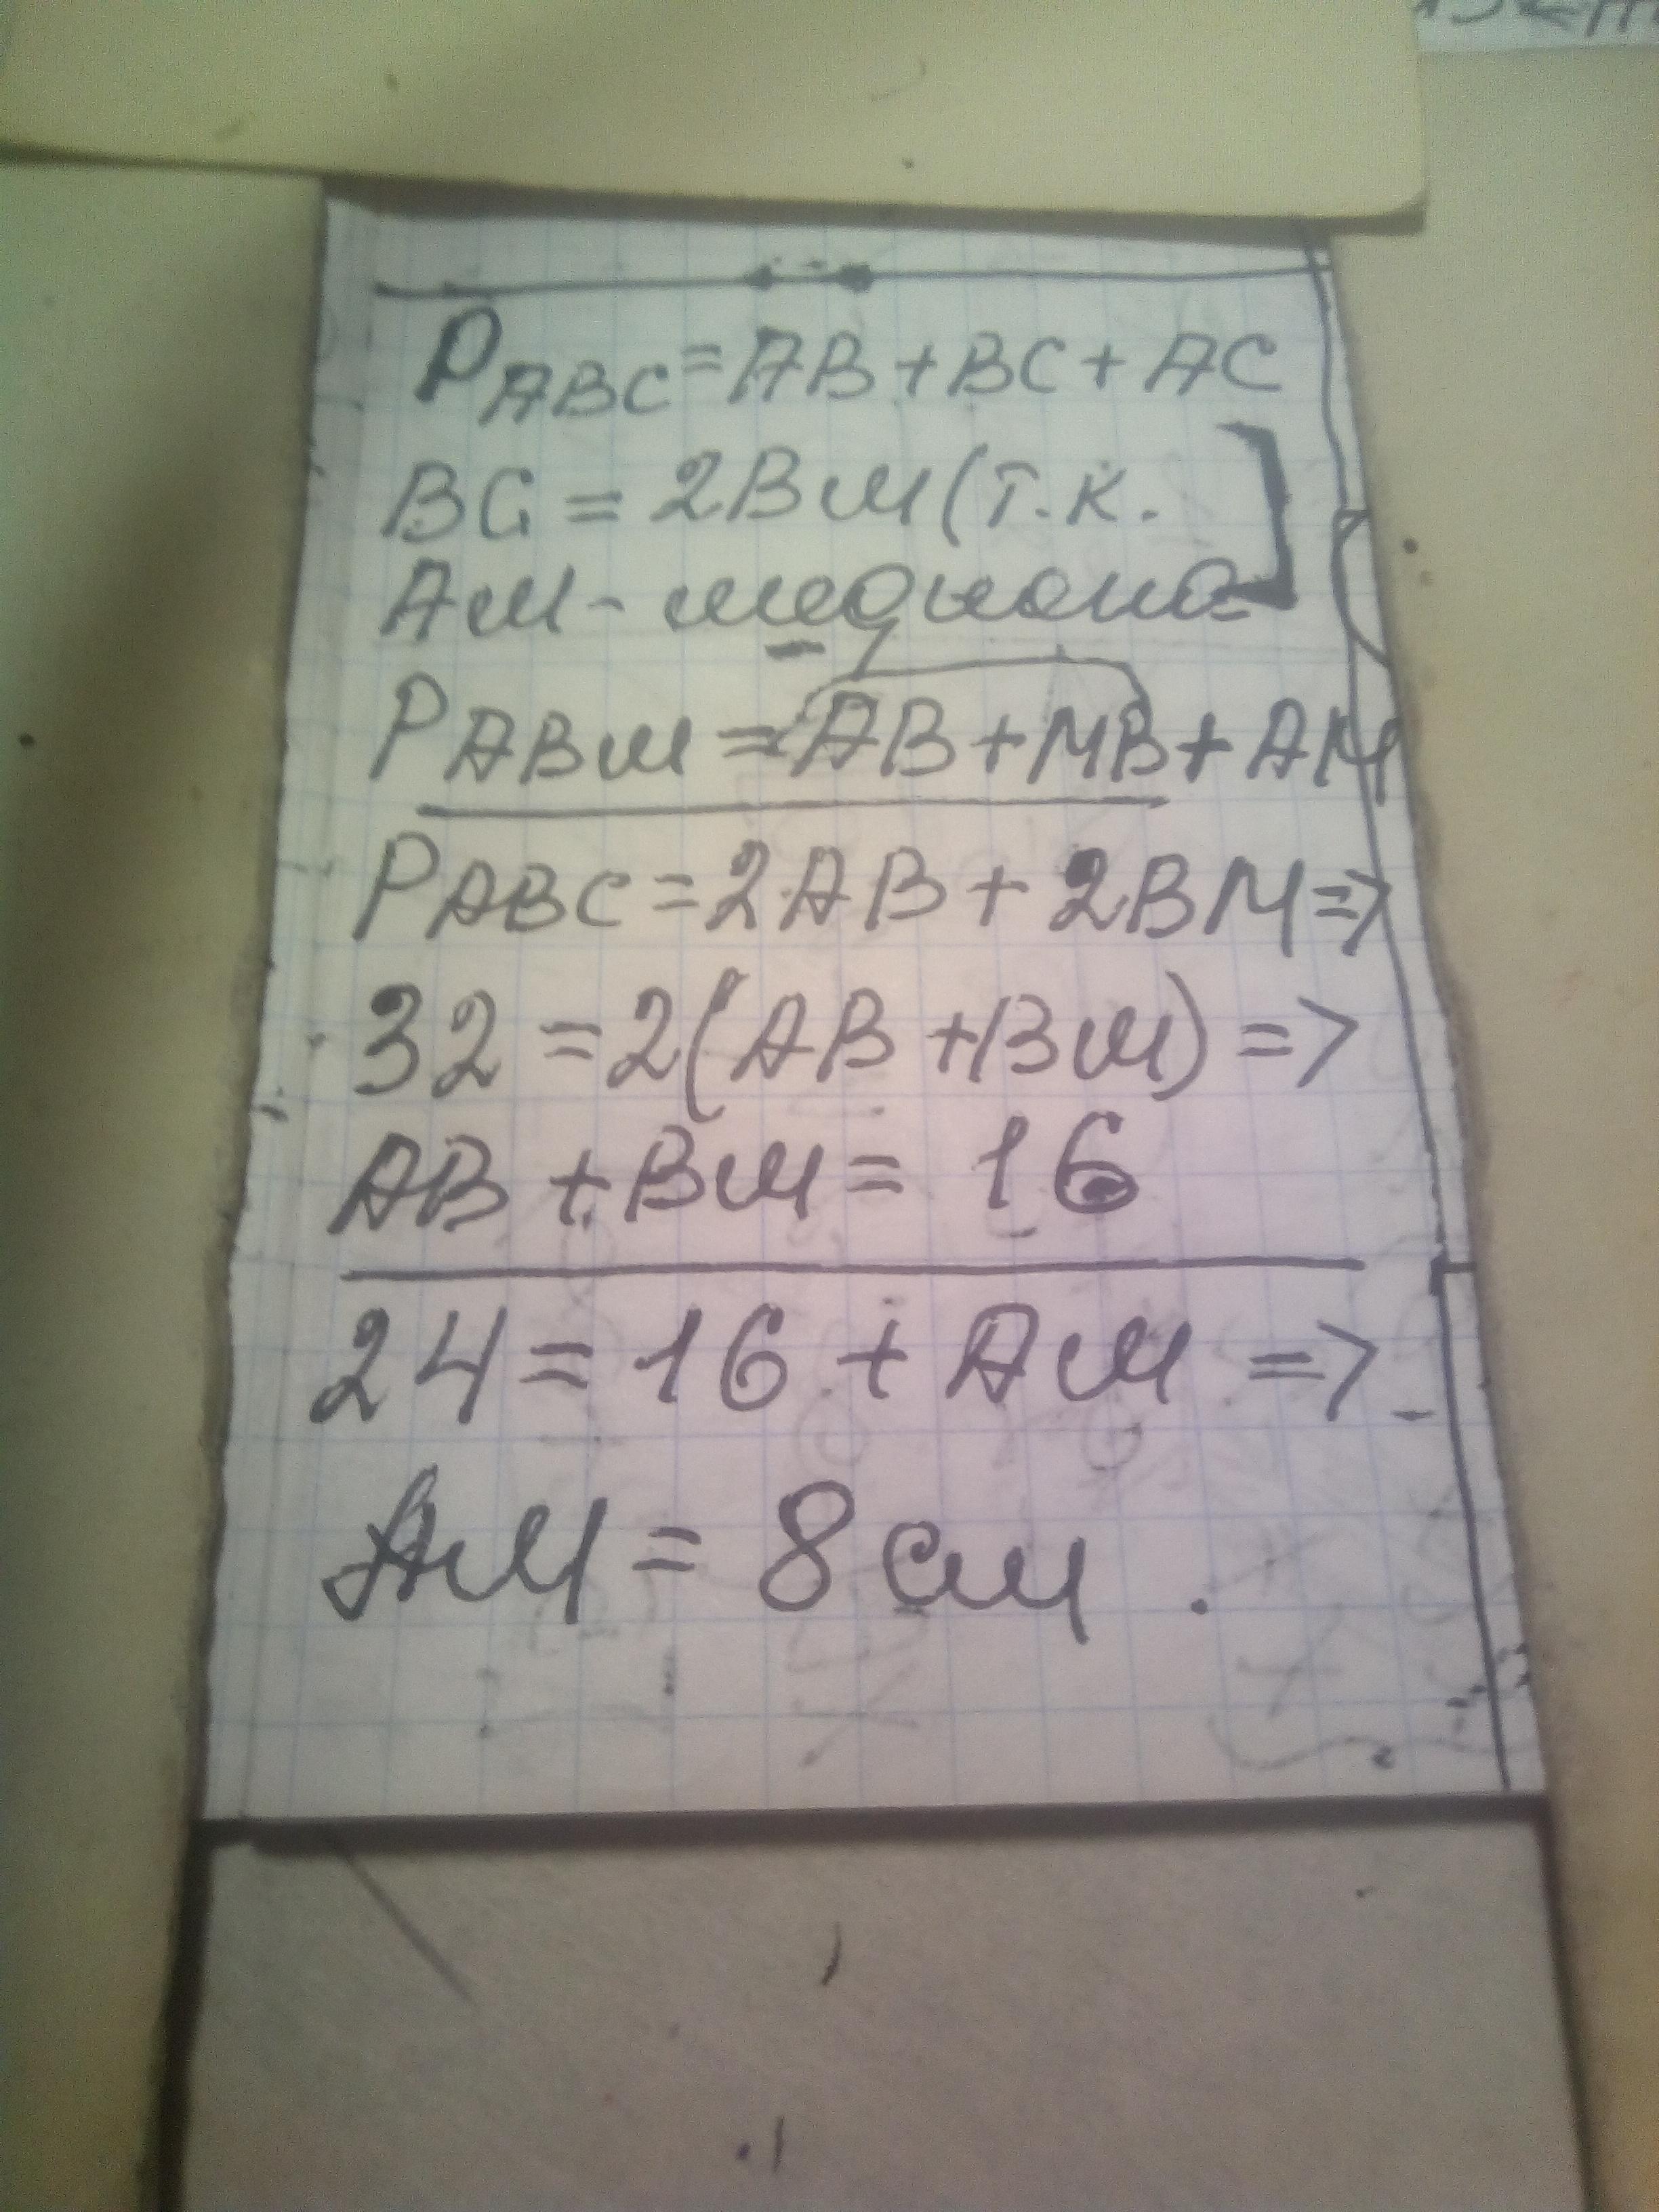 P ABC = AB + BC + AC
BC = 2BM (т.к.
AM - медиана]
P ABM = AB + MB + AM
P ABC = 2AB + 2BM =>
32 = 2(AB + BM) =>
AB + BM = 16
24 = 16 + AM =>
AM = 8 см .